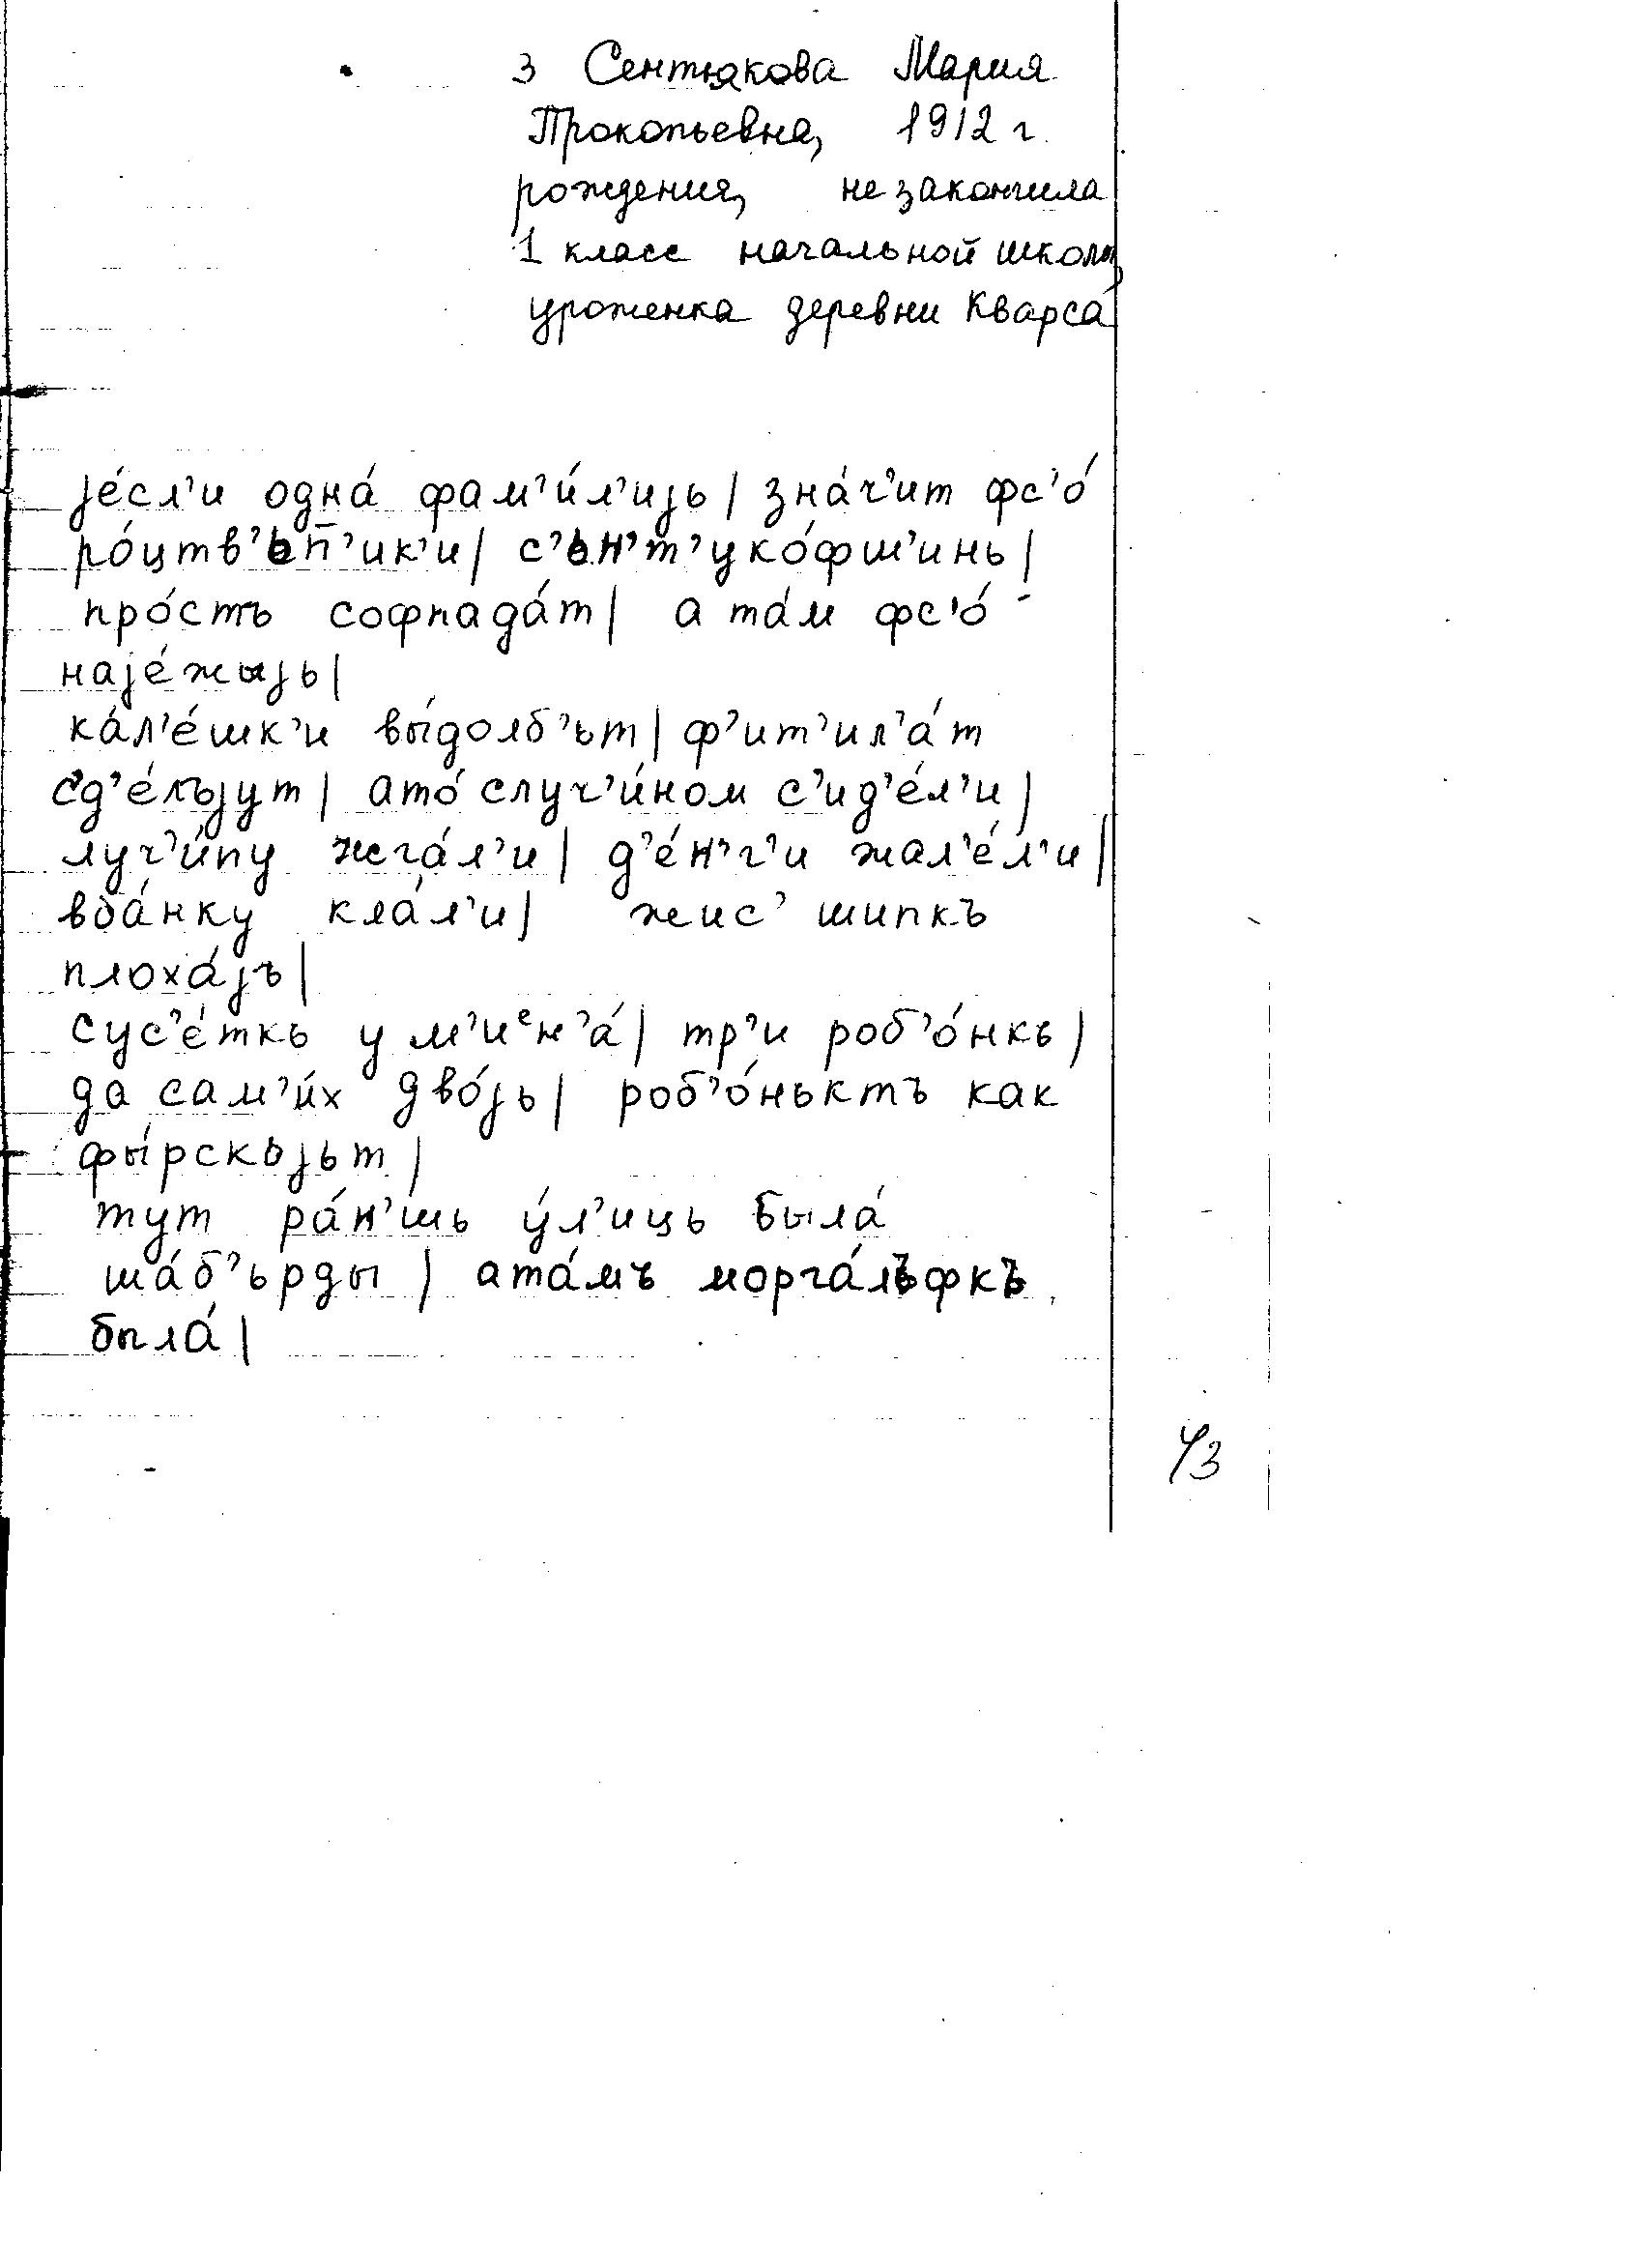 3 Сентякова Мария
Прокопьевна, 1912 г.
рождения, не закончила
1 класс начальной школы,
уроженка деревни Кварса
jе́сл'и одна́ фам'и́л'иjь | зна́ч'ит фс'о́
ро́цтв'ьн̄'ик'и | с'ьн'т'уко́фш'инь |
про́стъ софпада́т | а та́м фс'о́
наjе́жыjь |
ка́л'е́шк'и вы́долб'ьт | ф'ит'ил'а́т
с'д'е́лъjут | ато́ случ'и́ном с'ид'е́л'и |
луч'и́ну жга́л'и | д'е́н'г'и жал'е́л'и |
вба́нку кла́л'и | жис' шипкъ
плоха́jъ |
сус'е́ткь у м'иᵉн'а́ | тр'и роб'о́нкь |
да сам'и́х дво́jь | роб'о́ньктъ как
фы́рскъjьт |
тут ра́н'шь у́л'иць была́
ша́б'ьрды | ата́мъ морга́лъфкъ
была́ |
43